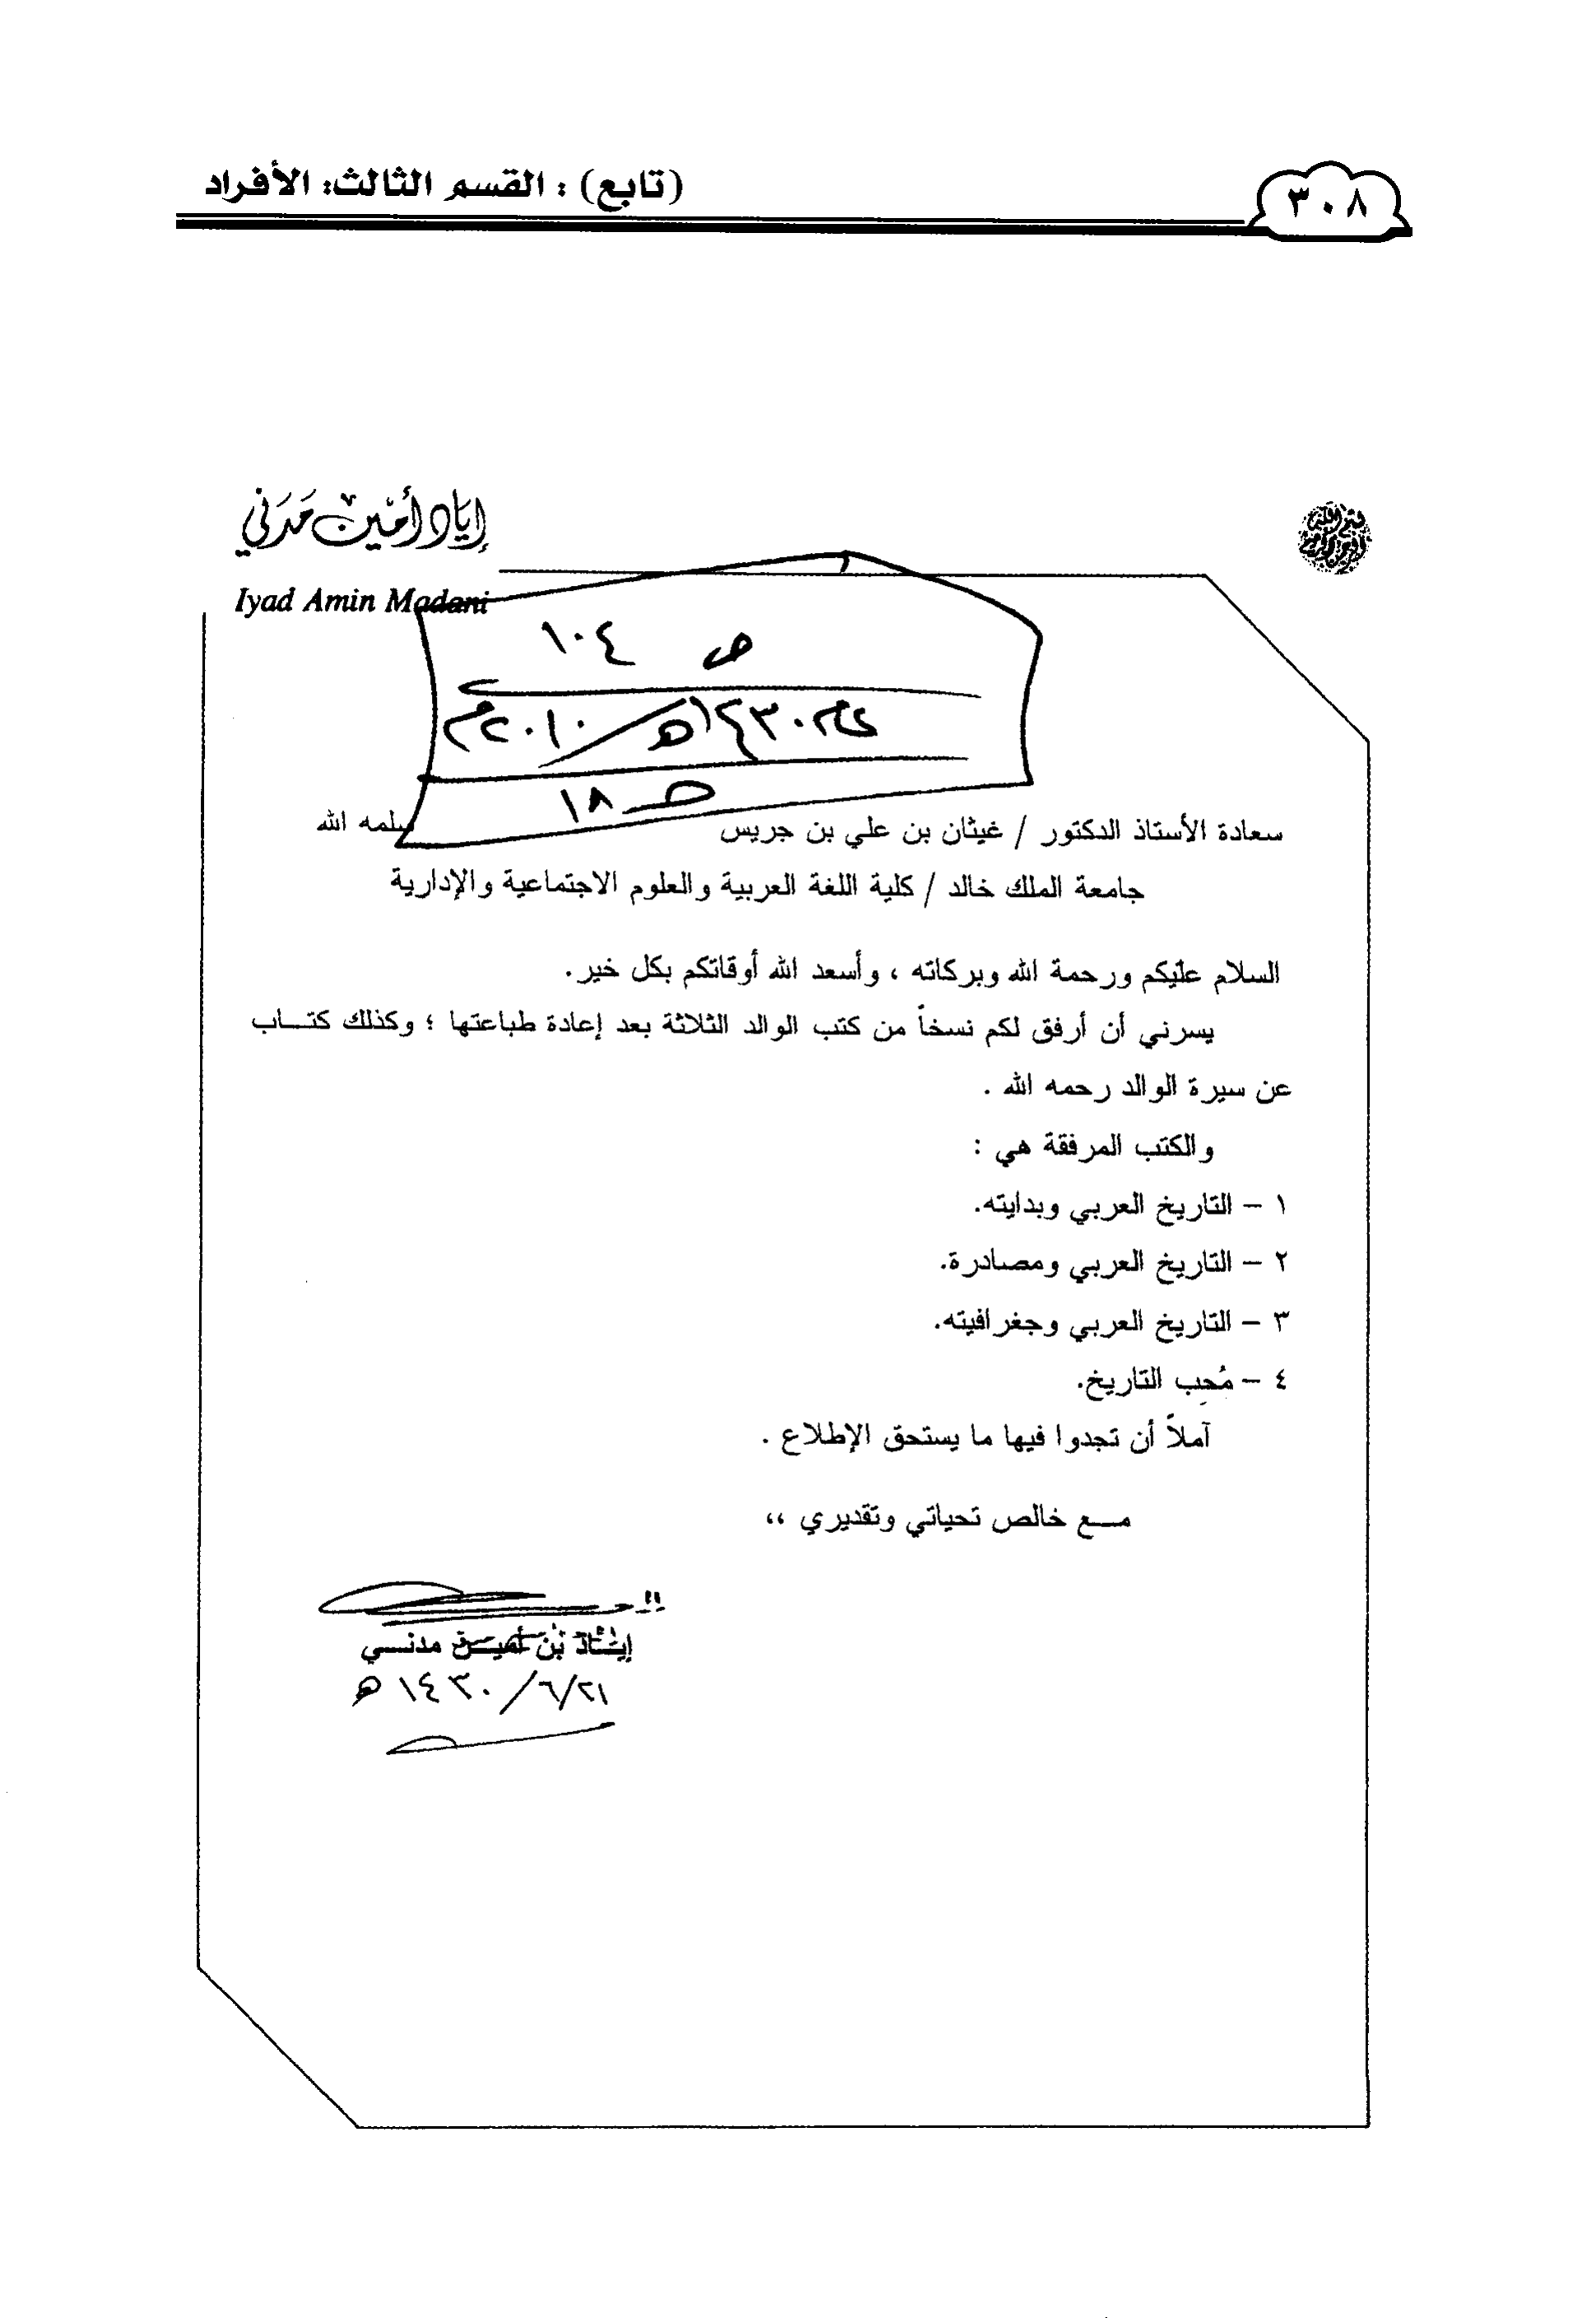 ٣٠٨
(تابع) : القسم الثالث: الأفراد
إياد أمين مدني
Iyad Amin Madani
ص ١٠٤
عام ١٤٣٠هـ/٢٠١٠م
صـ ١٨
سعادة الأستاذ الدكتور / غيثان بن علي بن جريس سلمه الله
جامعة الملك خالد / كلية اللغة العربية والعلوم الاجتماعية والإدارية
السلام عليكم ورحمة الله وبركاته ، وأسعد الله أوقاتكم بكل خير.
يسرني أن أرفق لكم نسخاً من كتب الوالد الثلاثة بعد إعادة طباعتها ؛ وكذلك كتـــاب
عن سيرة الوالد رحمه الله .
والكتب المرفقة هي :
١ – التاريخ العربي وبدايته.
٢ – التاريخ العربي ومصادرة.
٣ – التاريخ العربي وجغرافيته.
٤ – مُحِب التاريخ.
آملاً أن تجدوا فيها ما يستحق الإطلاع .
مـــع خالص تحياتي وتقديري ،،
إيــاد بن أميــن مدنــي
٢١/٦/١٤٣٠ هـ